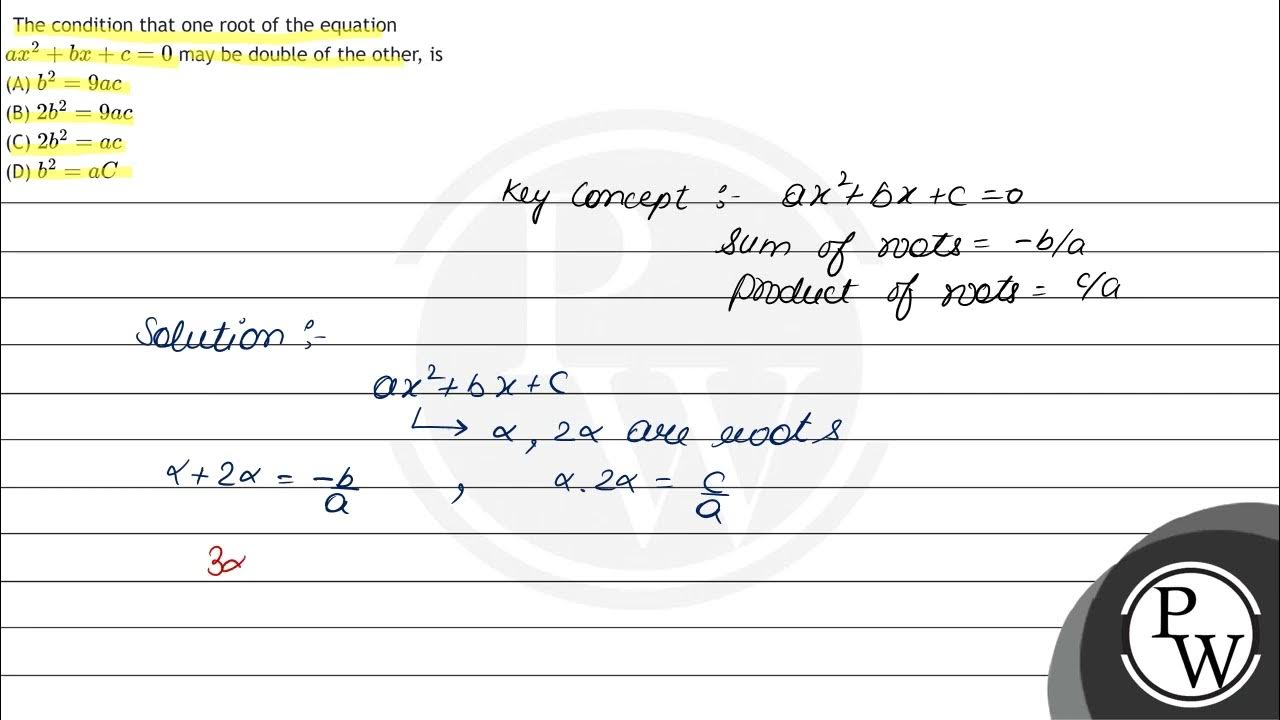 The condition that one root of the equation
ax² + bx + c = 0 may be double of the other, is
(A) b² = 9ac
(B) 2b² = 9ac
(C) 2b² = ac
(D) b² = aC
Key Concept :- ax²+bx+c=0
Sum of roots = -b/a
Product of roots = c/a
Solution :-
ax²+bx+c
↳ α, 2α are roots
α+2α = -b/a , α.2α = c/a
3α
PW
PW